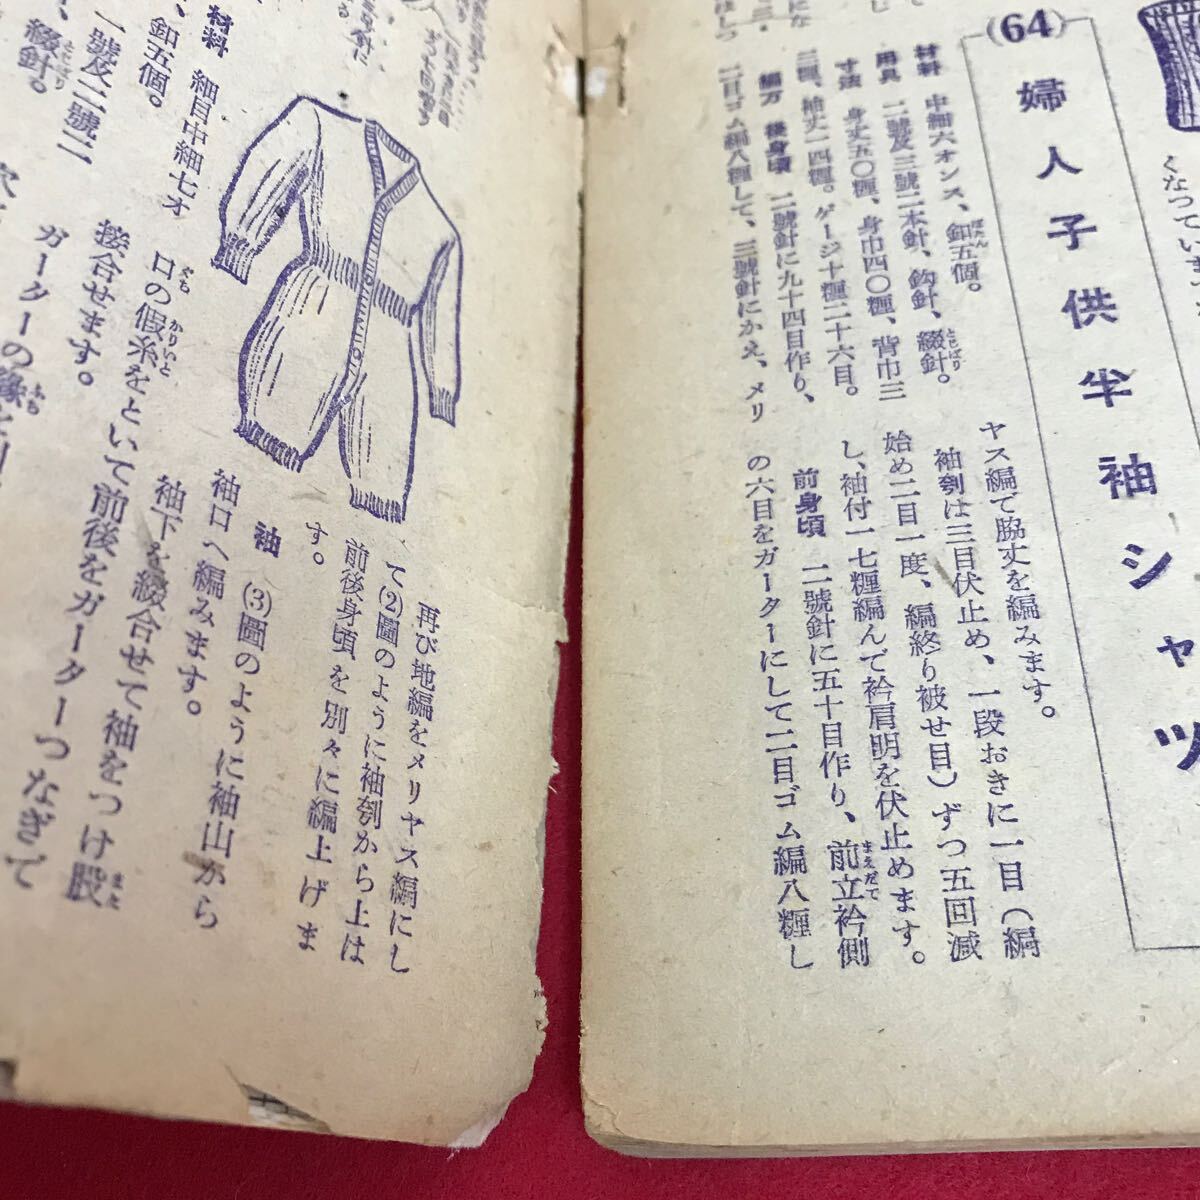 (64)
婦人子供半袖シャツ
材料　中細六オンス、釦五個。
用具　二號及三號二本針、鈎針、綴針。
寸法　身丈五〇糎、身巾四〇糎、背巾三
三糎、袖丈一四糎。ゲージ十糎二十六目。
編方　後身頃　二號針に九十四目作り、
二目ゴム編八糎して、三號針にかえ、メリ
ヤス編で脇丈を編みます。
袖刳は三目伏止め、一段おきに一目（編
始め二目一度、編終り被せ目）ずつ五回減
し、袖付一七糎編んで衿肩明を伏止めます。
前身頃　二號針に五十目作り、前立衿側
の六目をガーターにして二目ゴム編八糎し
くなっていま
材料　細目中細七オ
、釦五個。
一號及二號二
綴針。
再び地編をメリヤス編にし
て(2)圖のように袖刳から上は
前後身頃を別々に編上げま
す。
袖　(3)圖のように袖山から
袖口へ編みます。
袖下を綴合せて袖をつけ股
口の假糸をといて前後をガーターつなぎで
接合せます。